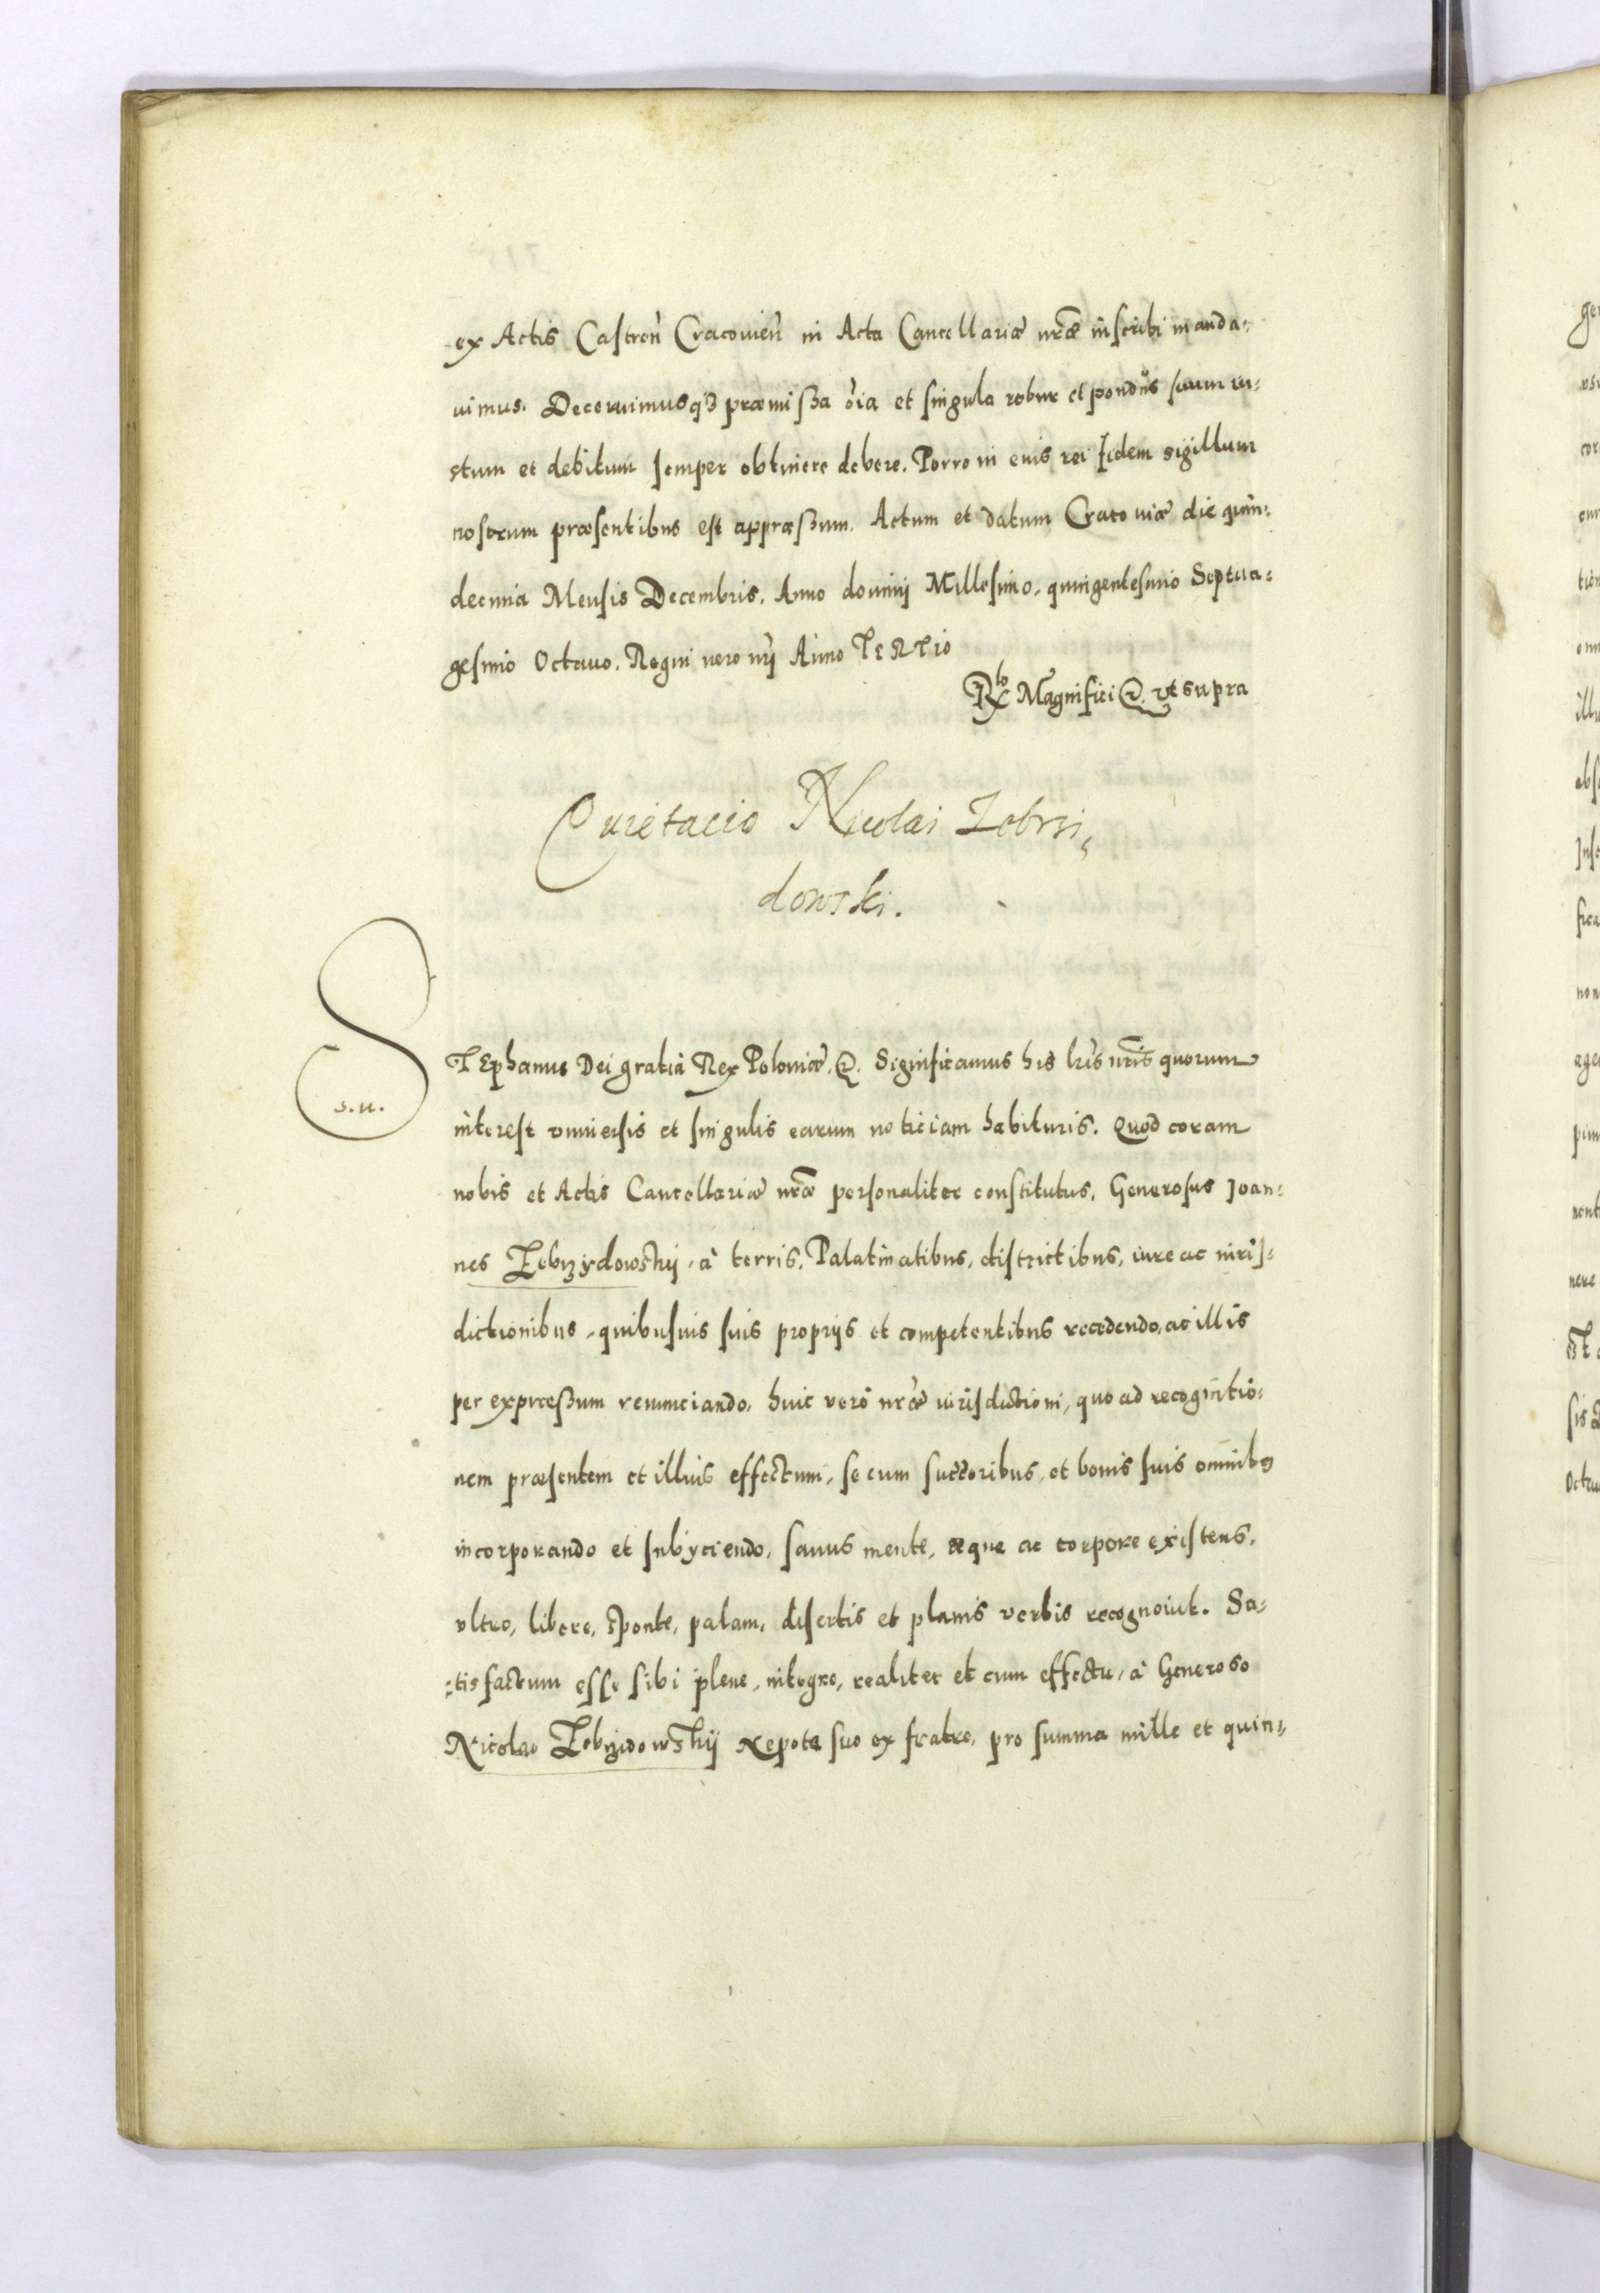 ex Actis Castren̄ Cracovien̄ in Acta Cancellariæ nr̄æ inscribi manda⸗
uimus. Decernimusq3 præmissa o͞ia et singula robur et pondus suum iu⸗
stum et debitum semper obtinere debere. Porro in cuius rei fidem sigillum
nostrum præsentibus est appræssum. Actum et datum Cracouiæ die quin⸗
decima Mensis Decembris. Anno domini Millesimo, quingentesimo Septua⸗
gesimo Octauo. Regni vero nr̄i Anno TERTio
Rlo Magnifici &. ut supra
Quietacio Nicolai Zebrzi⸗
dowski.
STEphanus Dei gratia Rex Poloniæ, &. Significamus his lr̄is nr̄is quorum
s.u.
interest vniuersis et singulis earum noticiam habituris. Quod coram
nobis et Actis Cancellariæ nr̄æ personaliter constitutus, Generosus Joan⸗
nes Zebrzydowskij, à terris, Palatinatibus, districtibus, iure ac iuris⸗
dictionibus, quibusuis suis proprijs et competentibus recedendo, ac illis
per expressum renunciando, huic vero nr̄æ iurisdictioni, quo ad recognitio⸗
nem præsentem et illius effectum, se cum succoribus, et bonis suis omnibus
incorporando et subijciendo, sanus mente, æque ac corpore existens,
vltro, libere, sponte, palam, disertis et planis verbis recognouit. Sa⸗
⸗tisfactum esse sibi plene, integre, realiter et cum effectu, à Generoso
Nicolao Zebrzidowskij Nepote suo ex fratre, pro summa mille et quin⸗